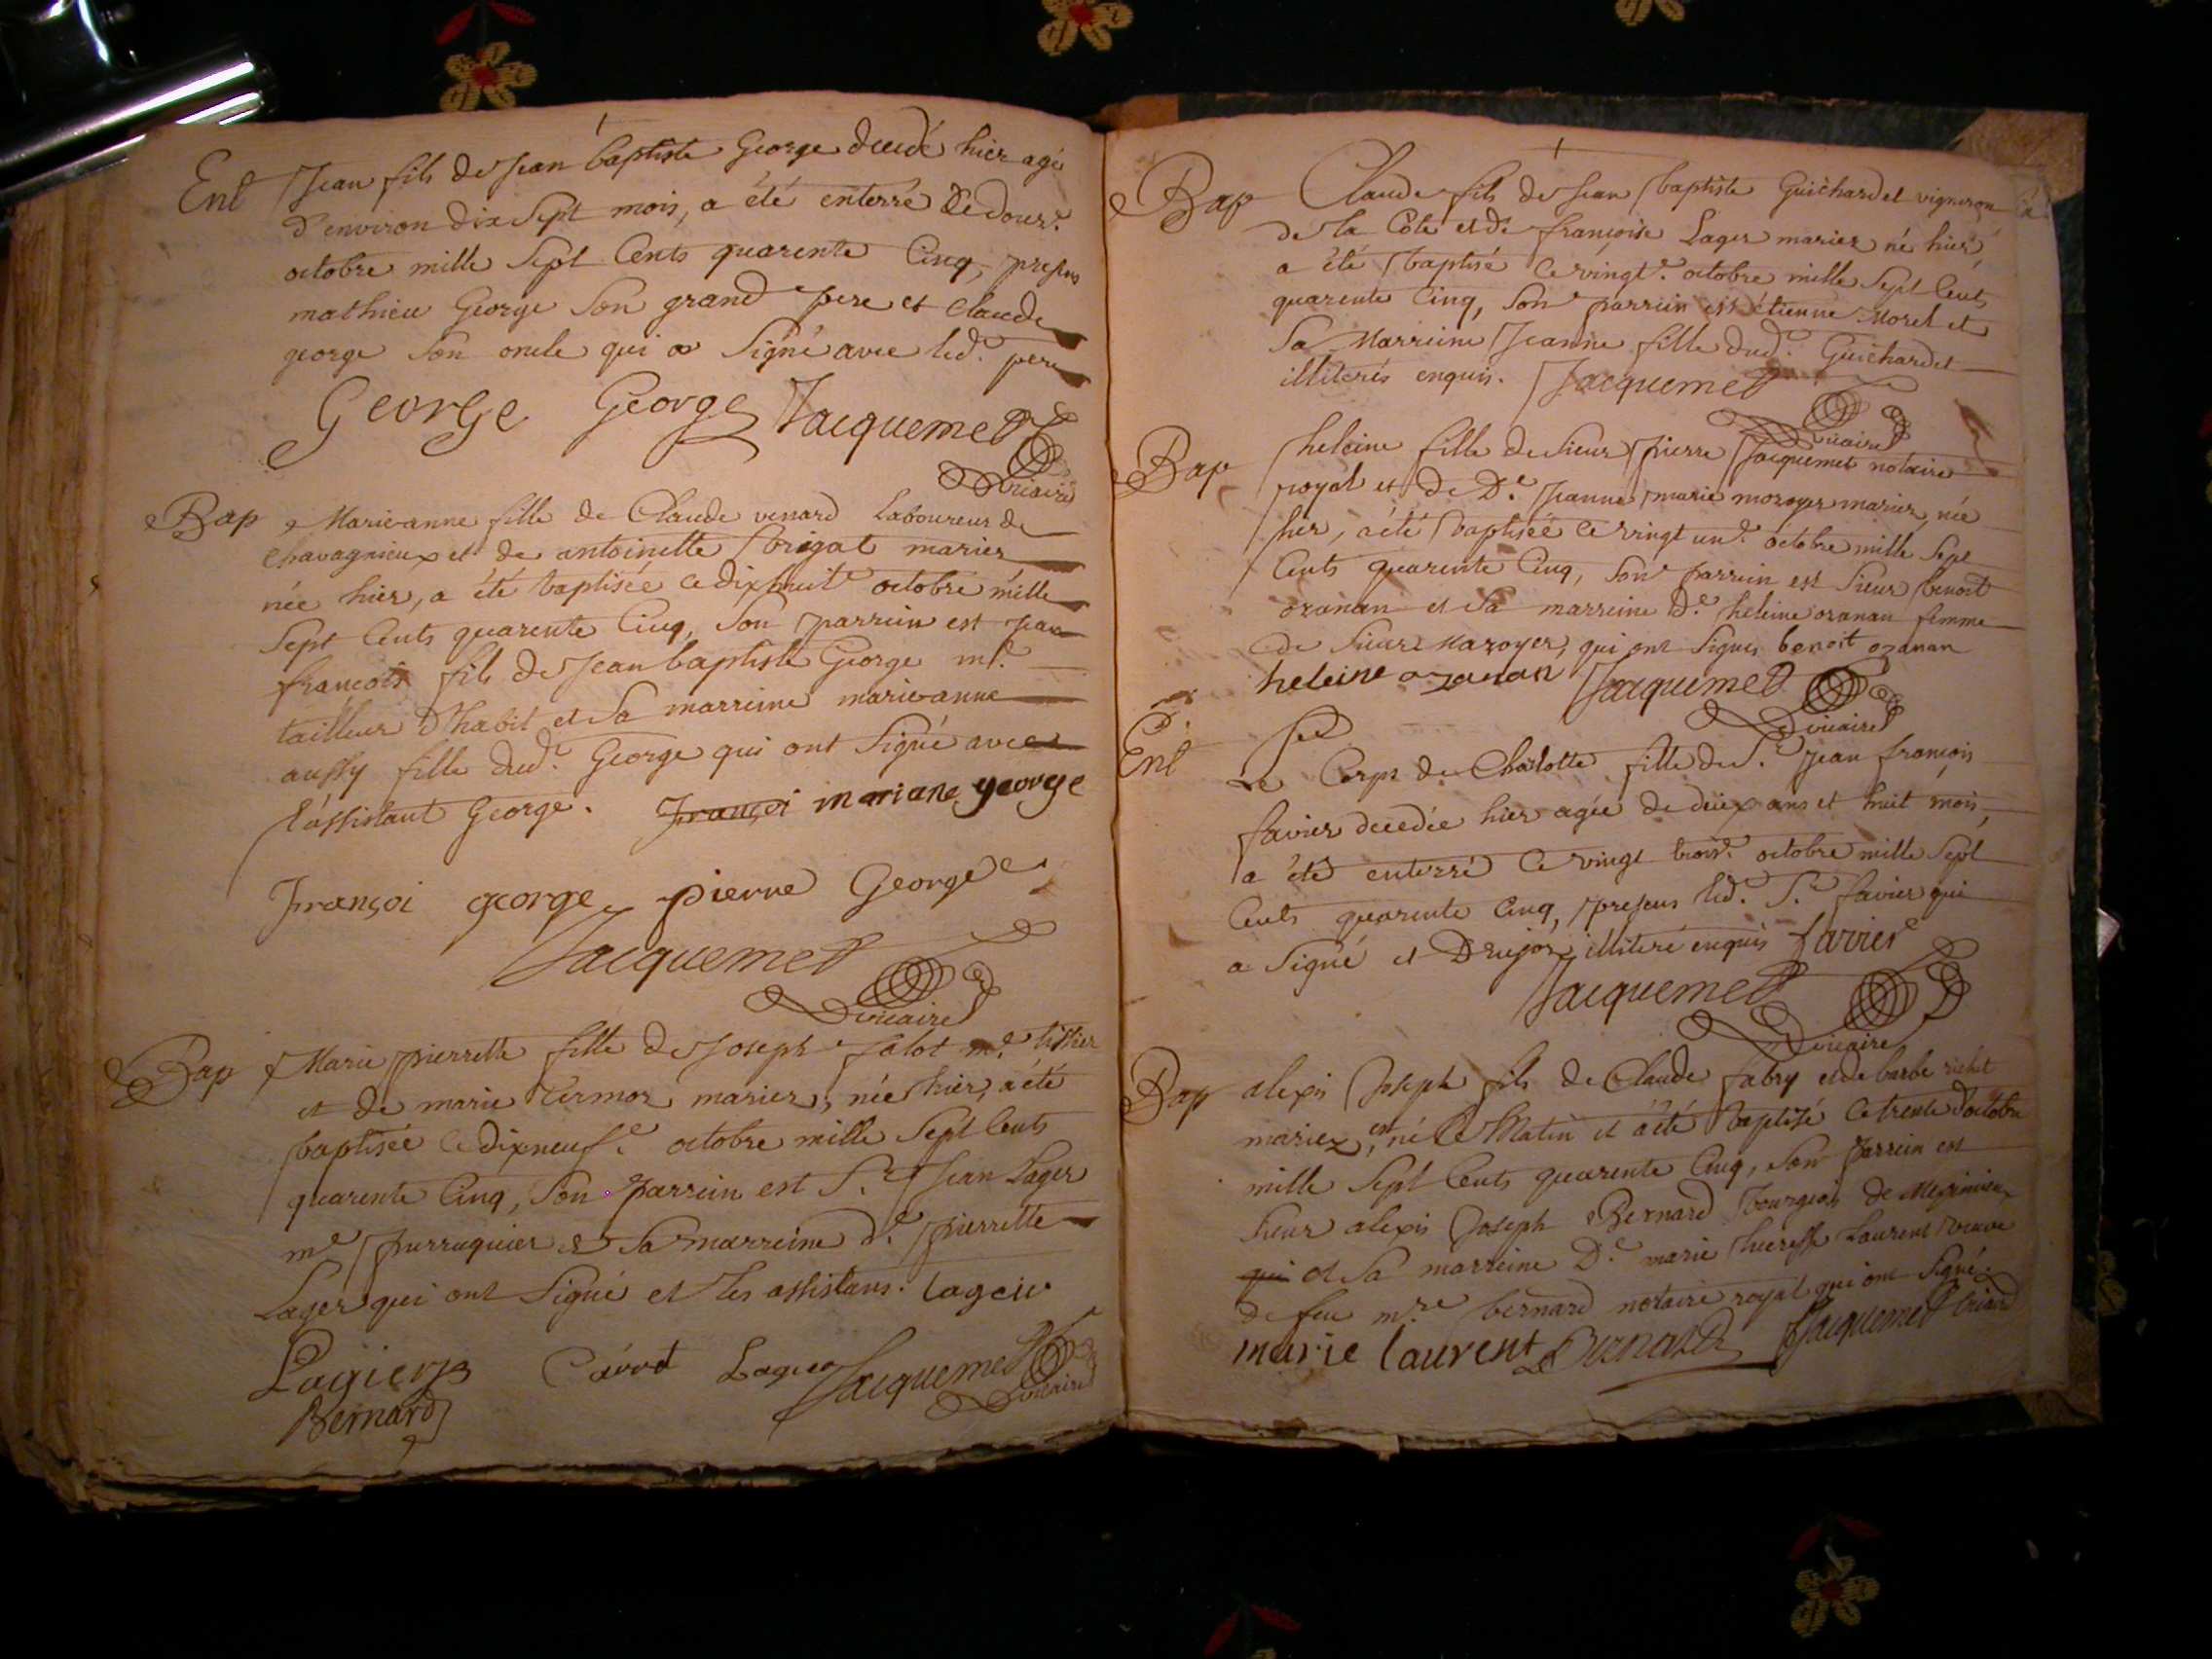 Ent Jean fils de Jean baptiste George decedé hier agé
d'environ dix sept mois, a été enterré ce douze.e
octobre mille Sept Cents quarente Cinq, presens
mathieu George Son grand pere et Claude
george Son oncle qui a Signé avec led. pere
George George Jacquemet
vicaire
Bap Marieanne fille de Claude venard Laboureur de
Chavagnieux et de antoinette brigat mariez
née hier, a été baptisée ce dix huit.e octobre mille
Sept Cents quarente Cinq, Son parrein est jean
francois fils de Jean baptiste George m.e
tailleur d'habit et Sa marreine marieanne
aussy fille dud. George qui ont Signé avec
l'assistant George. Françoi mariane george
Françoi george pierre George
Jacquemet
vicaire
Bap Marie pierrette fille de Joseph Jalot m.e tissier
et de marie termoz mariez, née hier, a été
baptisée ce dixneuf.e octobre mille Sept Cents
quarente Cinq, Son parrein est S.r Jean Lager
m.e purruquier et Sa marreine d.e pierrette
Lager qui ont Signé et les assistans. Lageir
Lagier Lagier Jacquemet
vicaire
Bernard
Bap Claude fils de Jean baptiste Guichardet vigneron
de la Côte et de françoise Lager mariez né hier,
a été baptisé ce vingt.e octobre mille Sept Cents
quarente Cinq, Son parrein est étienne Morel et
Sa Marreine Jeanne fille dud. Guichardet
illiterés enquis. Jacquemet
vicaire
Bap heleine fille de Sieur pierre Jacquemet notaire
royal et de D.e Jeanne marie mozoyer mariez, née
hier, a été baptisée ce vingt un.e octobre mille Sept
Cents quarente Cinq, Son parrein est Sieur benoit
ozanan et Sa marreine D.e heleine ozanan femme
de Sieur Mazoyer, qui ont Signés benoit ozanan
heleine ozanan Jacquemet
vicaire
Ent Le Corps de Charlotte fille de S.r Jean françois
favier decedée hier agée de deux ans et huit mois,
a été enterré ce vingt trois.e octobre mille Sept
Cents quarente Cinq, presens led. S.r favier qui
a Signé et illiteré enquis favier
Jacquemet
vicaire
Bap alexis Joseph fils de Claude fabry et de barbe richet
mariez, est né ce Matin et a été baptisé ce trente d'octobre
mille Sept Cents quarente Cinq, Son parrein est
Sieur alexis Joseph Bernard bourgeois de Meximieux
qui et Sa marreine D.e marie theresse Laurent veuve
de feu m.re bernard notaire royal qui ont Signé.
marie laurent Bernard Jacquemet vicaire